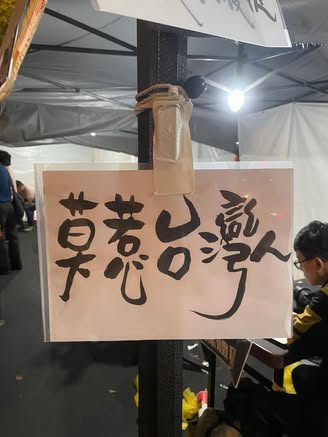 莫惹台灣人